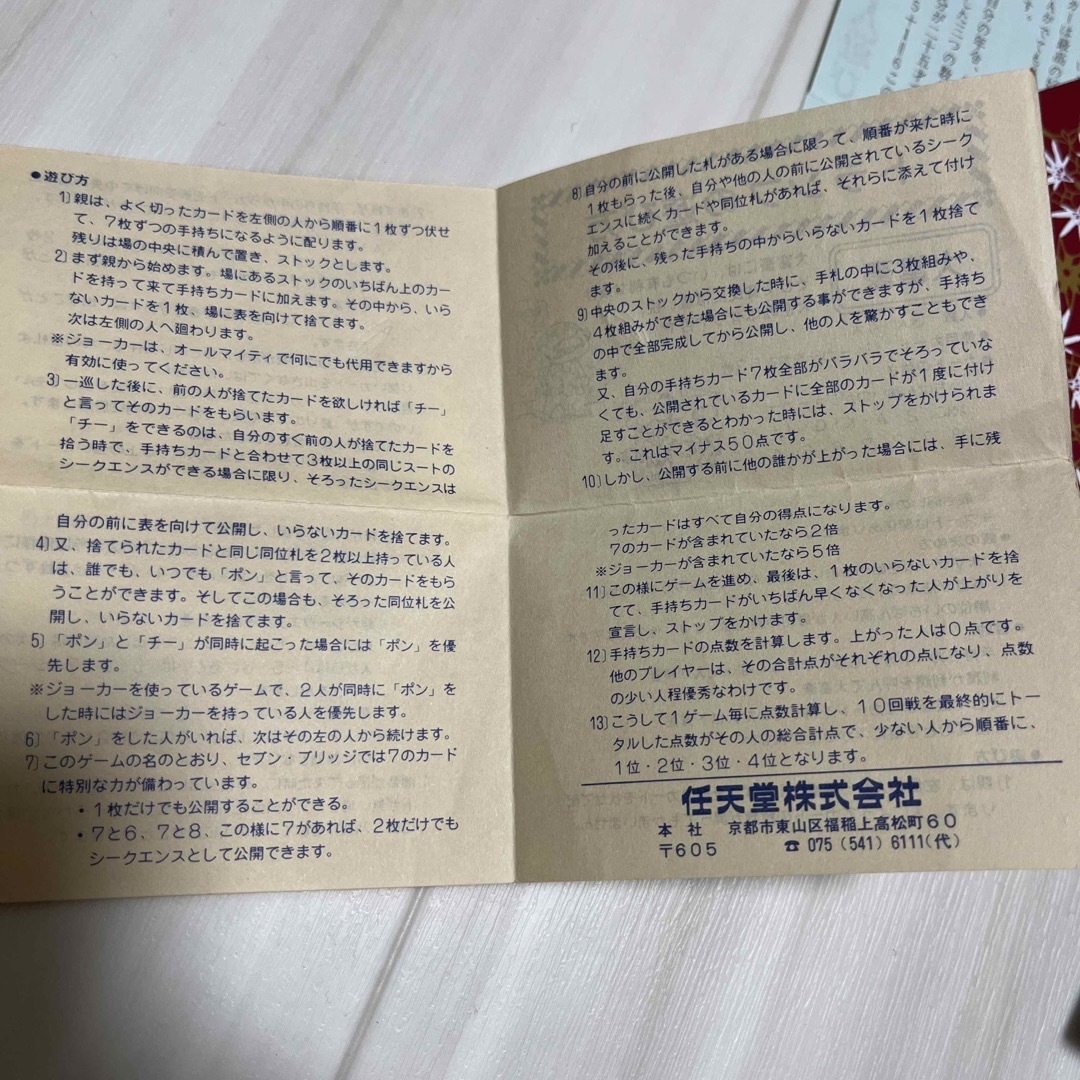 ●遊び方
1)親は、よく切ったカードを左側の人から順番に1枚ずつ伏せ
て、7枚ずつの手持ちになるように配ります。
残りは場の中央に積んで置き、ストックとします。
2)まず親から始めます。場にあるストックのいちばん上のカー
ドを持って来て手持ちカードに加えます。その中から、いら
ないカードを1枚、場に表を向けて捨てます。
次は左側の人へ廻わります。
※ジョーカーは、オールマイティで何にでも代用できますから
有効に使ってください。
3)一巡した後に、前の人が捨てたカードを欲しければ「チー」
と言ってそのカードをもらいます。
「チー」をできるのは、自分のすぐ前の人が捨てたカードを
拾う時で、手持ちカードと合わせて3枚以上の同じスートの
シークエンスができる場合に限り、そろったシークエンスは
自分の前に表を向けて公開し、いらないカードを捨てます。
4)又、捨てられたカードと同じ同位札を2枚以上持っている人
は、誰でも、いつでも「ポン」と言って、そのカードをもら
うことができます。そしてこの場合も、そろった同位札を公
開し、いらないカードを捨てます。
5)「ポン」と「チー」が同時に起こった場合には「ポン」を優
先します。
※ジョーカーを使っているゲームで、2人が同時に「ポン」を
した時にはジョーカーを持っている人を優先します。
6)「ポン」をした人がいれば、次はその左の人から続けます。
7)このゲームの名のとおり、セブン・ブリッジでは7のカード
に特別な力が備わっています。
・1枚だけでも公開することができる。
・7と6、7と8、この様に7があれば、2枚だけでも
シークエンスとして公開できます。
8)自分の前に公開した札がある場合に限って、順番が来た時に
1枚もらった後、自分や他の人の前に公開されているシーク
エンスに続くカードや同位札があれば、それらに添えて付け
加えることができます。
その後に、残った手持ちの中からいらないカードを1枚捨て
ます。
9)中央のストックから交換した時に、手札の中に3枚組みや、
4枚組みができた場合にも公開する事ができますが、手持ち
の中で全部完成してから公開し、他の人を驚かすこともでき
ます。
又、自分の手持ちカード7枚全部がバラバラでそろっていな
くても、公開されているカードに全部のカードが1度に付け
足すことができるとわかった時には、ストップをかけられま
す。これはマイナス50点です。
10)しかし、公開する前に他の誰かが上がった場合には、手に残
ったカードはすべて自分の得点になります。
7のカードが含まれていたなら2倍
※ジョーカーが含まれていたなら5倍
11)この様にゲームを進め、最後は、1枚のいらないカードを捨
てて、手持ちカードがいちばん早くなくなった人が上がりを
宣言し、ストップをかけます。
12)手持ちカードの点数を計算します。上がった人は0点です。
他のプレイヤーは、その合計点がそれぞれの点になり、点数
の少い人程優秀なわけです。
13)こうして1ゲーム毎に点数計算し、10回戦を最終的にトー
タルした点数がその人の総合計点で、少ない人から順番に、
1位・2位・3位・4位となります。
任天堂株式会社
本社 京都市東山区福稲上高松町60
〒605 ☎075(541)6111(代)